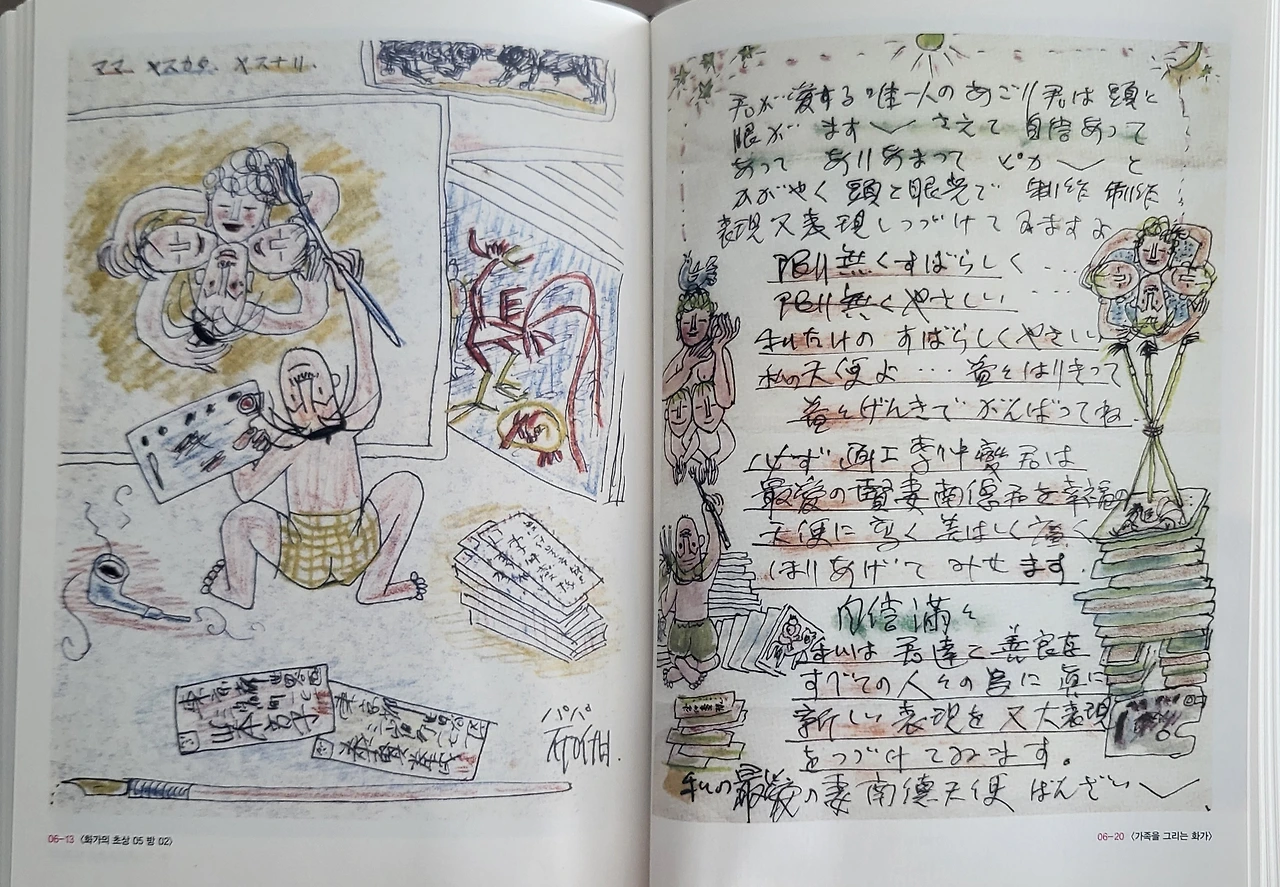 ママ ヤスカタ ヤスナリ.
パパ
06-13 〈화가의 초상 05 방 02〉
君が愛する唯一人のあごり君は頭と
眼が ます〳〵 さえて 自信あって
あって ありあまって ピカ〳〵 と
かがやく 頭と眼光で 制作 制作
表現又表現しつづけてゐますよ
限り無くすばらしく・・・
限り無くやさしい
私だけの すばらしくやさしい
私の天使よ・・・益々はりきって
益々げんきで がんばってね.
必ず 画工李仲燮君は
最愛の賢妻南徳君を幸福の
天使に 高く 美ばしく 高く
ほりあげて みせます.
自信満々
私は 君達と 善良な
すべての人々の為に 真に
新しい 表現を 又 大表現
をつづけてゐます。
私の最愛の妻南徳天使 ばんざい〳〵
06-20 〈가족을 그리는 화가〉